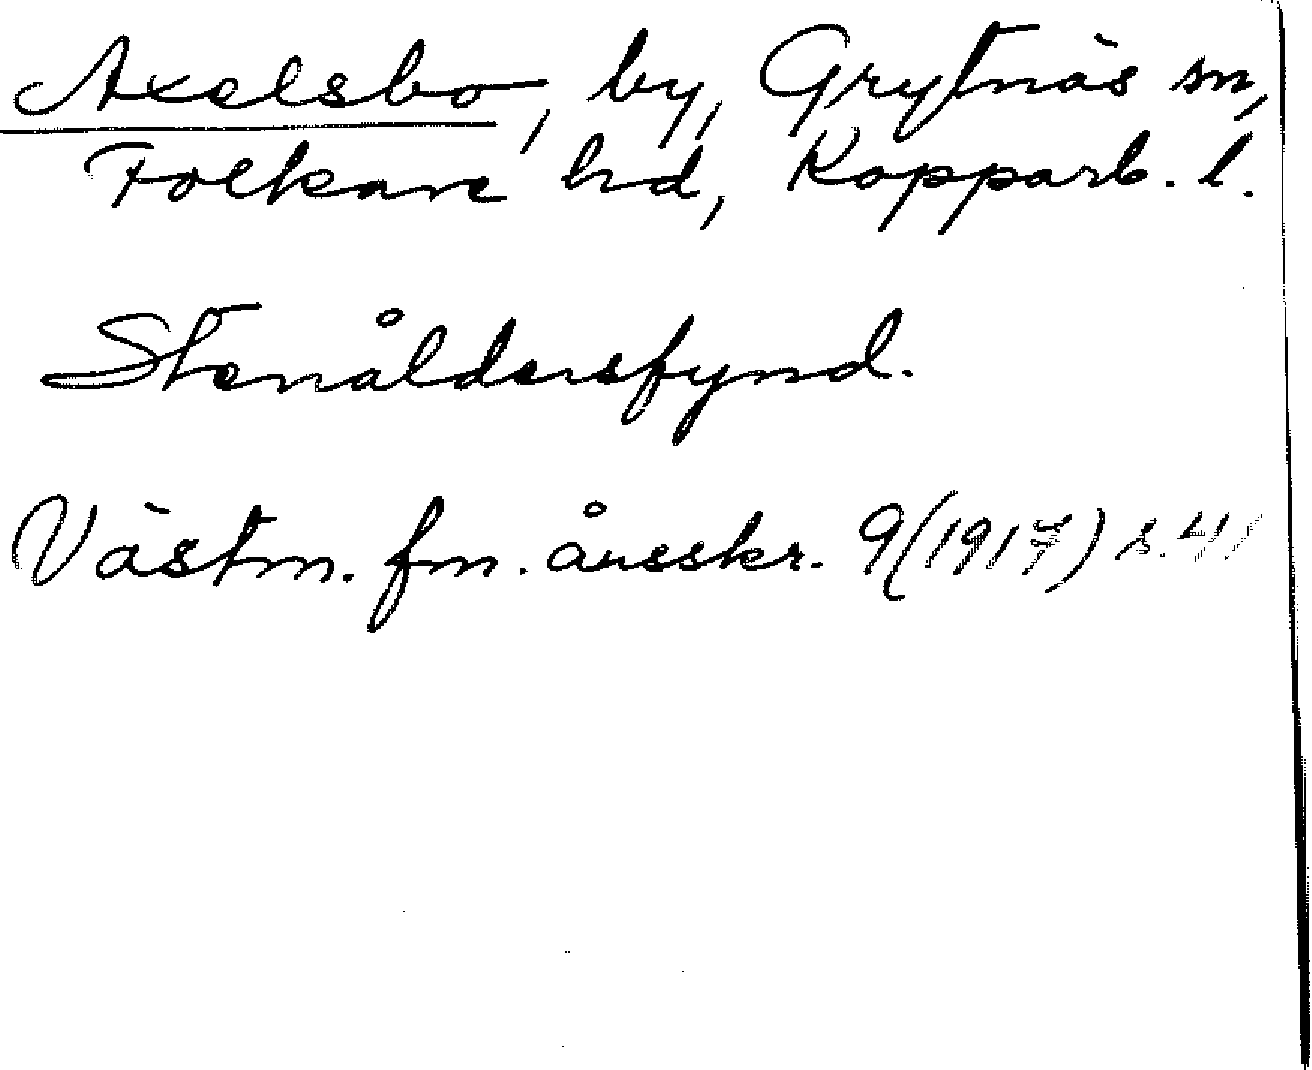 Axelsbo, by, Grytnäs sn,
Folkare hd, Kopparb. l.
Stenåldersfynd.
Västm. fm. årsskr. 9 (1917) s. 41